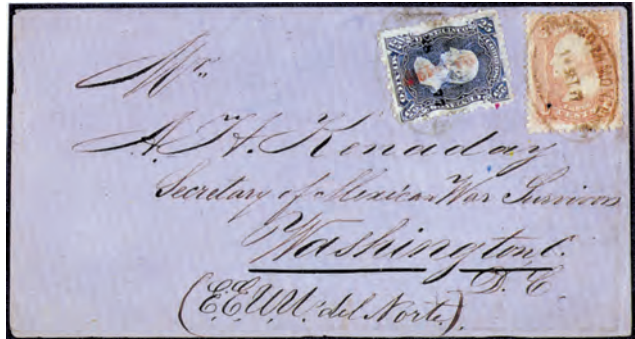 Mr.
A. H. Kenaday
Secretary of Mexican War Survivors
Washington C.
D. C.
(E.E.U.U. del Norte.)